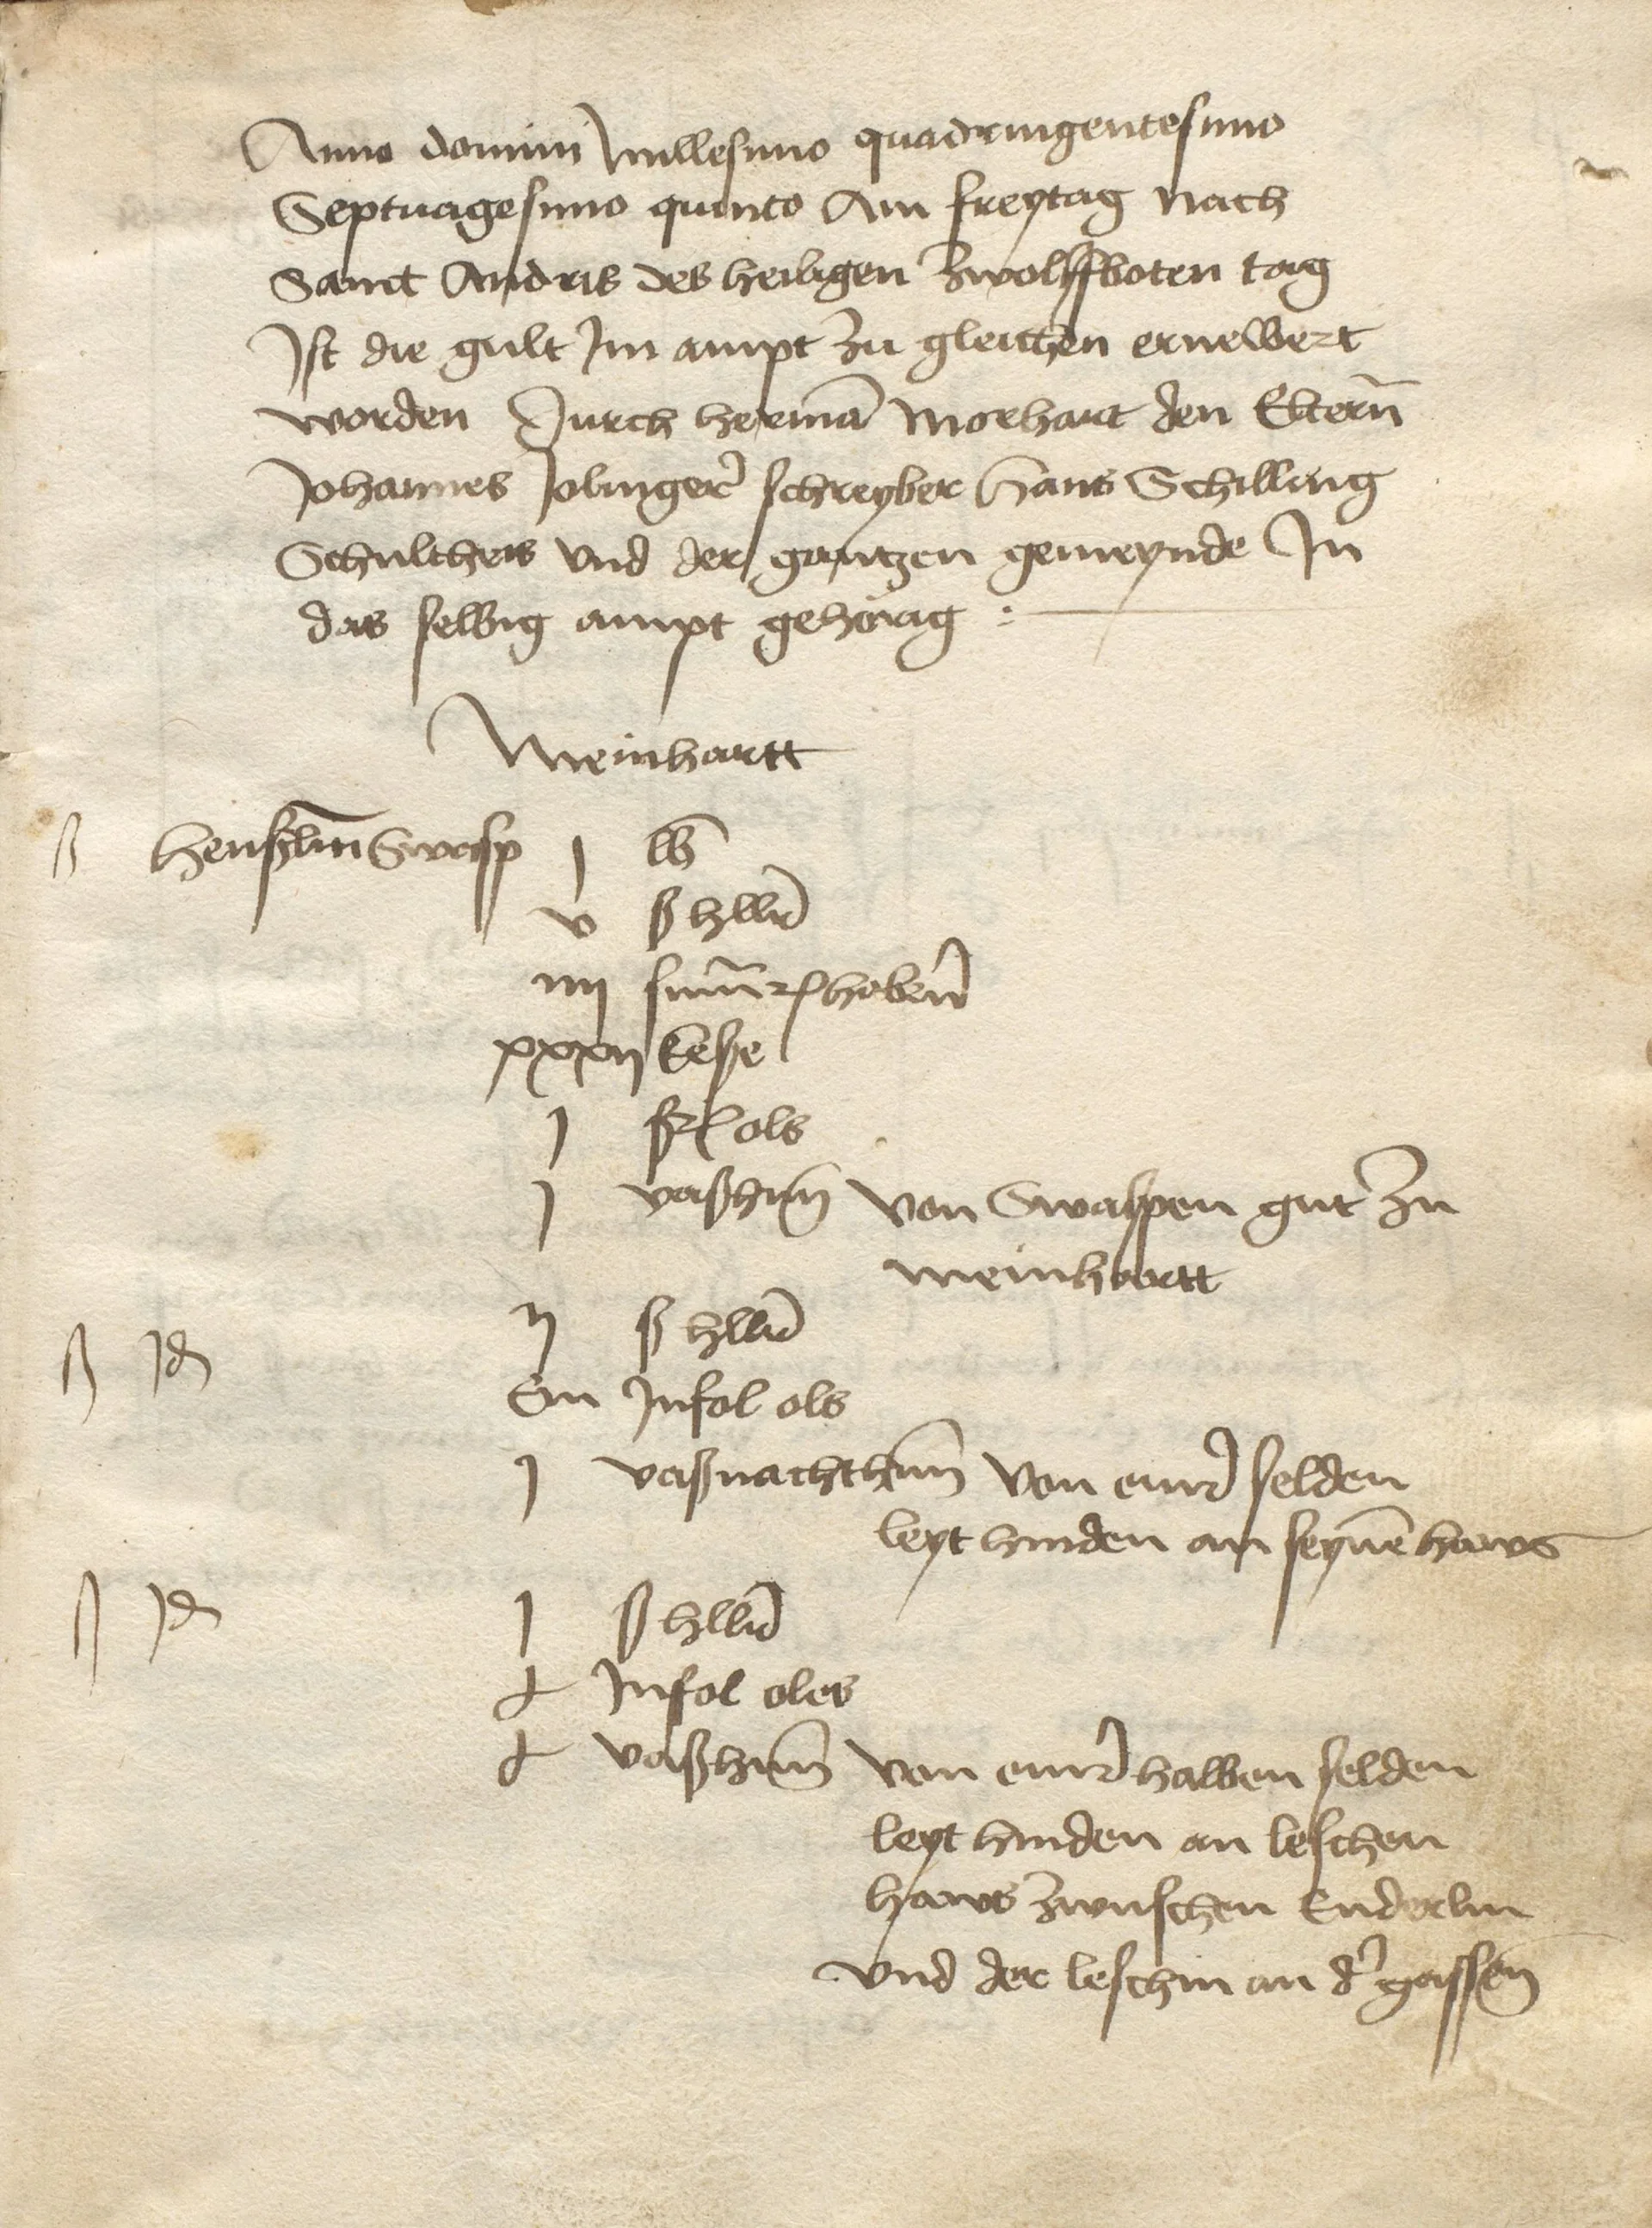 Anno domini Millesimo quadringentesimo
Septuagesimo quinto Am freytag nach
Sanct Andris des heiligen zwolffboten tag
Ist die gult Im ampt zu gleichen ernewert
worden Durch hermā Morhart den Elterñ
Johannes Jolinger schreyber Hans Schilling
Schultheis vnd der gantzen gemeynde In
das selbig ampt gehörig :
Meinhartt
ß henßlin Swasp j lb
v ß hllr
iiij sumr habern
xxxij keße
j ols
j vaßhun von Swaspen gut zu
meinhartt
ß Id ij ß hllr
Ein Insol ols
j vaßnachthun von einer selden
leyt hinden an seynē haws
ß Id j ß hllr
Insol oles
vaßhun von einer halben selden
leyt hinden an leschen
haws zwuschen Enderlin
vnd der leschin an der gassen